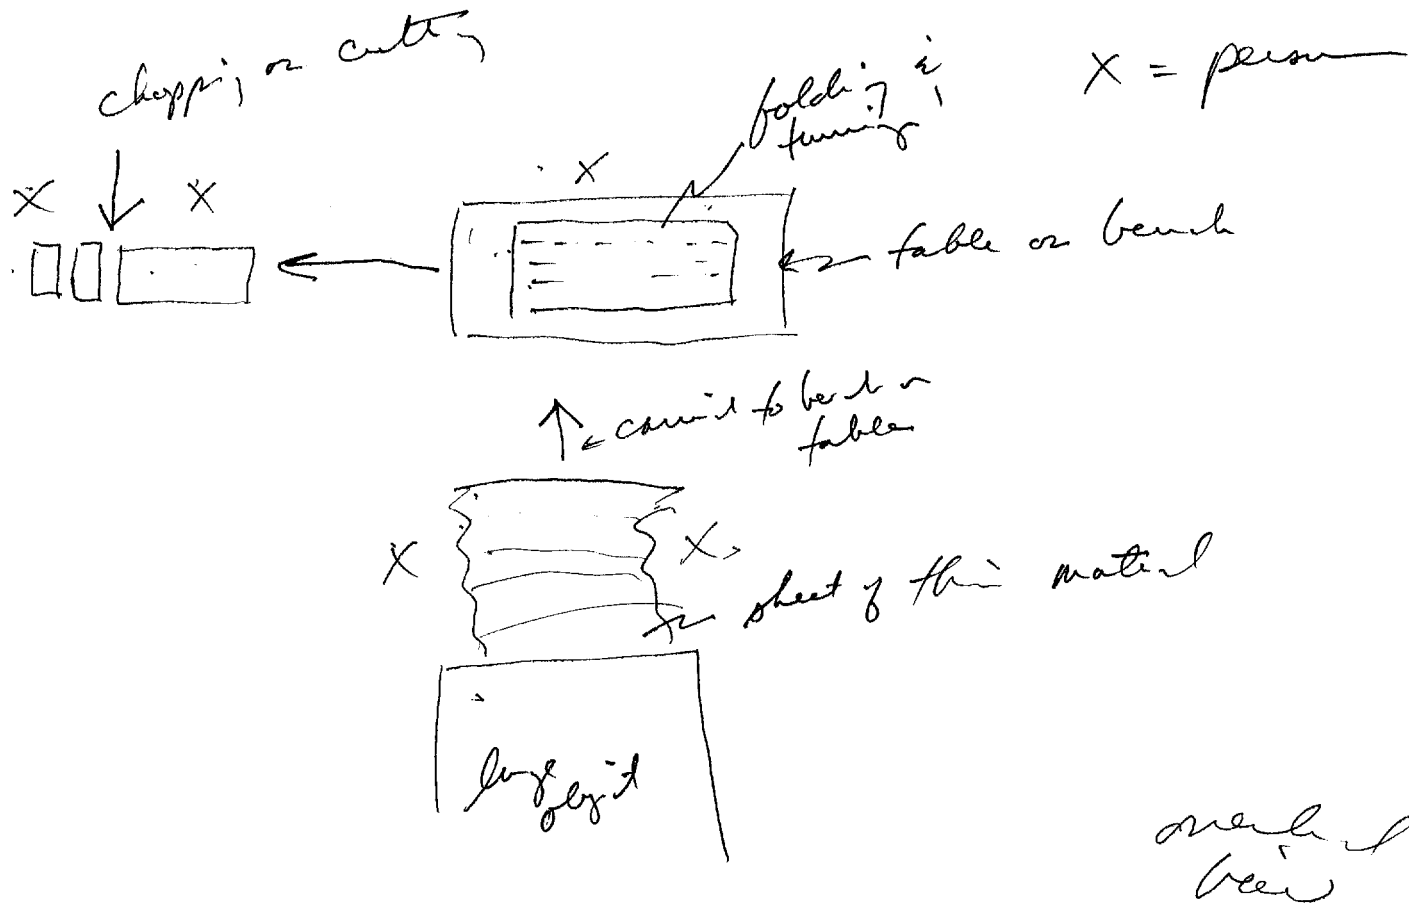 chopping or cutting
folding &
turning
X = person
X
X
X
table or bench
carried to bench or
tables
X
X
sheet of thin material
large
object
overhead
view